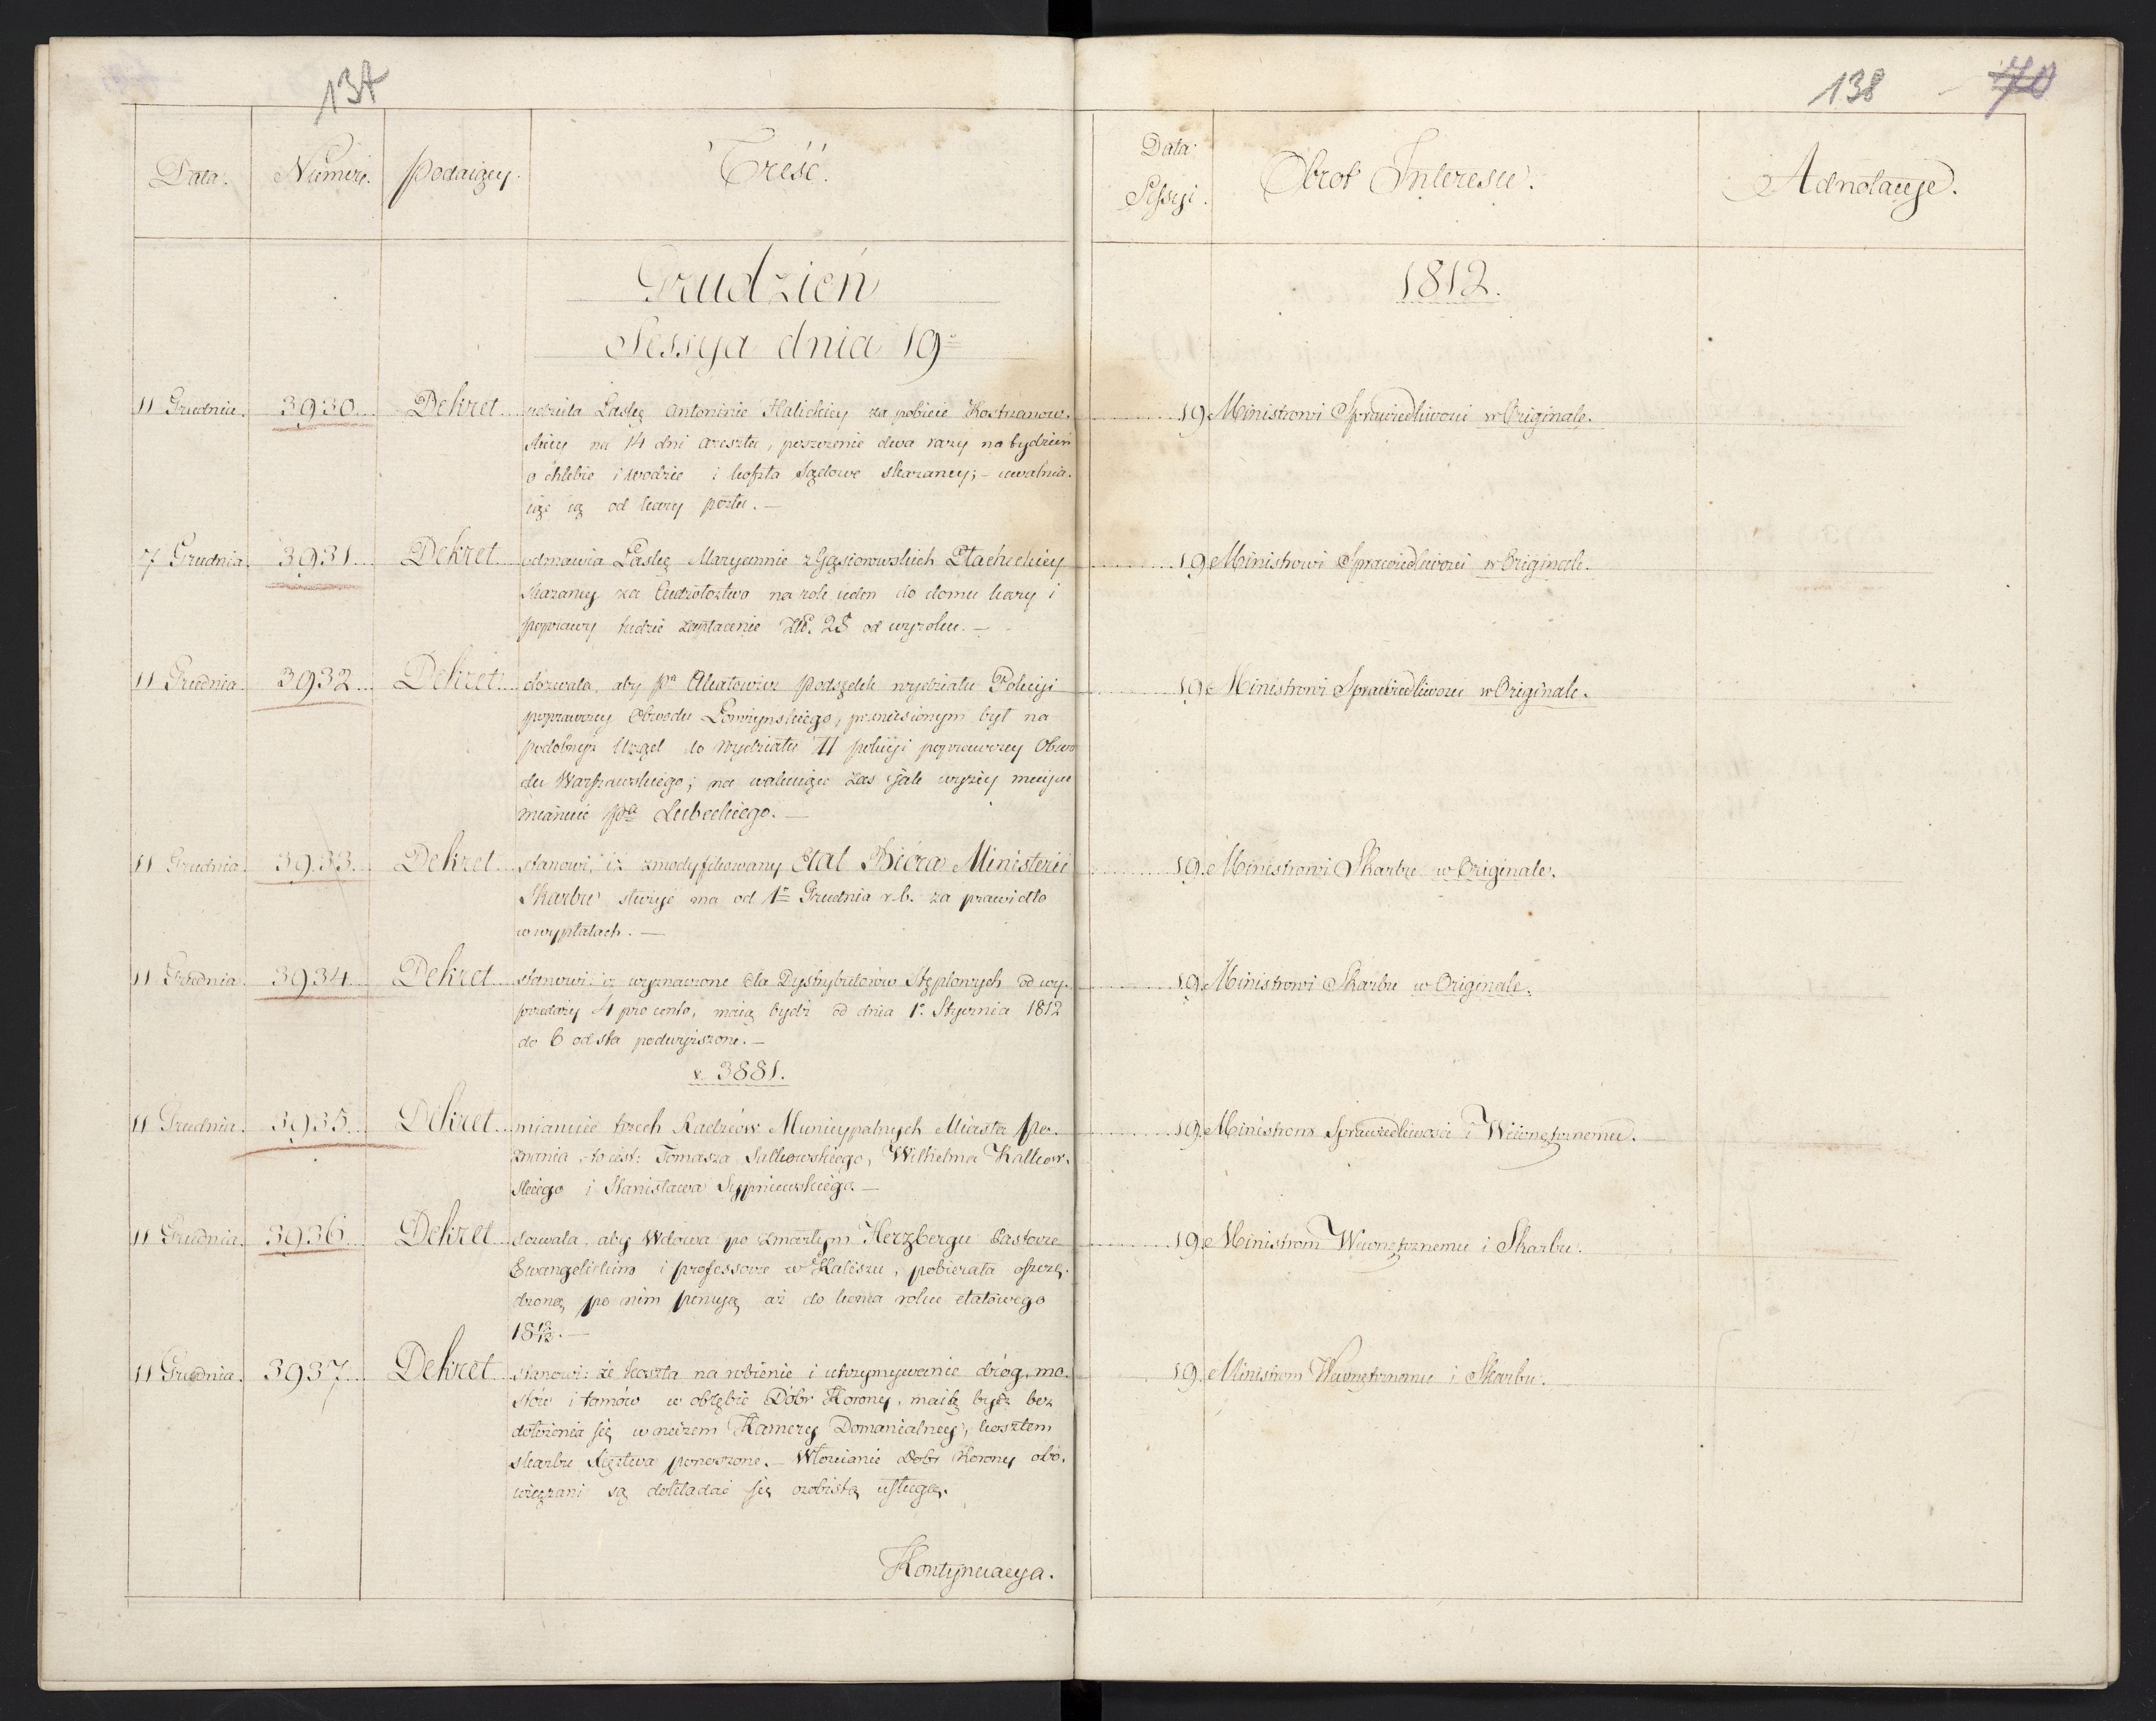 137
Data.
Numera.
Podaiący.
Treść.
Grudzień
Sessya dnia 19º
11 Grudnia. 3930. Dekret udziela Łaskę Antoninie Halickiey za pobicie Kostrzanow,
skiey na 14 dni aresztu, poszczenie dwa razy na tydzień
o chlebie i wodzie i koszta sądowe skazaney; - uwalnia.
iąc ią od kary postu. —
7 Grudnia 3931. Dekret odmawia Łaskę Maryannie z Gąsiorowskich Płacheckiey
skazaney za Cudzołoztwo na rok ieden do domu kary i
poprawy tudzież zapłacenie Złł. 25 od wyroku. —
11 Grudnia 3932. Dekret dozwala, aby Pn Podsędek wydziału Policyi
poprawczey Obwodu Łomżyńskiego, przeniesionym był na
podobnyż Urząd do Wydziału II policyi poprawczey Obwo
du Warszawskiego; na wakuiące zaś iak wyżey mieysce
mianuie Pa Lubeckiego. —
11 Grudnia. 3933. Dekret stanowi, iż zmodyfikowany Etat Bióra Ministerii
Skarbu służyć ma od 1º Grudnia r. b. za prawidło
w wypłatach. —
11 Grudnia. 3934. Dekret stanowi: iż wyznaczone dla Dystrybutorów Stęplowych od wy.
przedaży 4 pro cento, maią bydź od dnia 1º Stycznia 1812
do 6 od sta podwyższone. —
v. 3881.
11 Grudnia. 3935. Dekret mianuie trzech Radzców Municypalnych Miasta Po.
znania, to iest: Tomasza Sulkowskiego, Wilhelma Kalkow.
skiego i Stanisława Sypniewskiego —
11 Grudnia. 3936. Dekret dozwala, aby Wdowa po zmarłym Herzbergu Pastorze
Ewangelickim i professorze w Kaliszu, pobierała oszczę.
dzoną po nim pensyą aż do końca roku etatowego
18 12/13. —
11 Grudnia. 3937. Dekret stanowi: że koszta na robienie i utrzymywanie dróg, mo.
stów i tamów w obrębie Dóbr Korony, maią bydź bez
dołożenia się w niczem Kamery Domanialney, kosztem
skarbu Xięstwa ponoszone. — Włościanie Dobr Korony obo.
wiązani są dokładać się osobistą usługą.
Kontynuacya.
138
70
Data
Sessyi.
Obrot Interesu.
Adnotacye.
1812.
19. Ministrowi Sprawiedliwości w Originale.
19. Ministrowi Sprawiedliwości w Originale.
19. Ministrowi Sprawiedliwości w Originale.
19. Ministrowi Skarbu w Originale.
19. Ministrowi Skarbu w Originale.
19. Ministrom Sprawiedliwości i Wewnętrznemu.
19. Ministrom Wewnętrznemu i Skarbu.
19. Ministrom Wewnętrznemu i Skarbu.